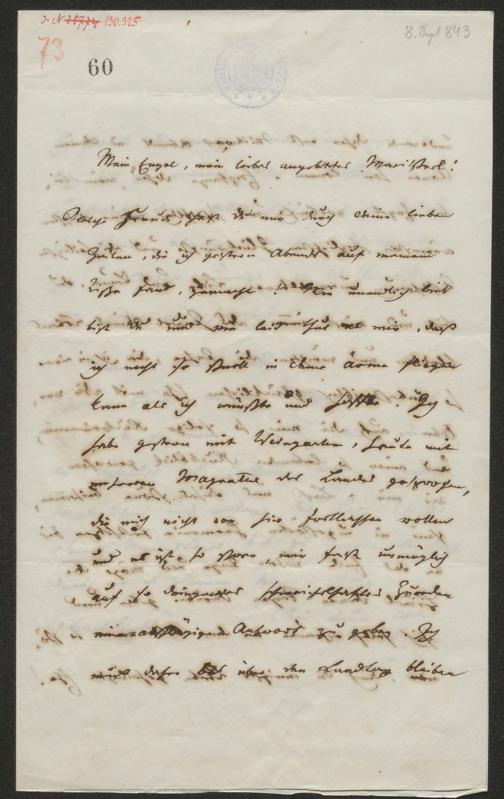 J. N. 130.325
8. Sept 843
73
60
Mein Engel, mein liebes angebetetes Marisserl!
Welche Freude hast du mir durch deine lieben
Zeilen, die ich gestern Abends auf meinem
Tische fand, gemacht! Wie unendlich lieb
bist du und wie leid thut es mir, daß
ich nicht so schnell in deine Arme fliegen
kann als ich wünschte und hoffte. Ich
habe gestern mit Weingarten, heute mit
mehreren Magnaten des Landes gesprochen,
die mich nicht von hier fortlassen wollen
und es ist so schwer mir fast unmöglich
auf so dringendes schmeichelhaftes Zureden
eine abschlägige Antwort zu geben. Ich
muß daher über den Landtag bleiben